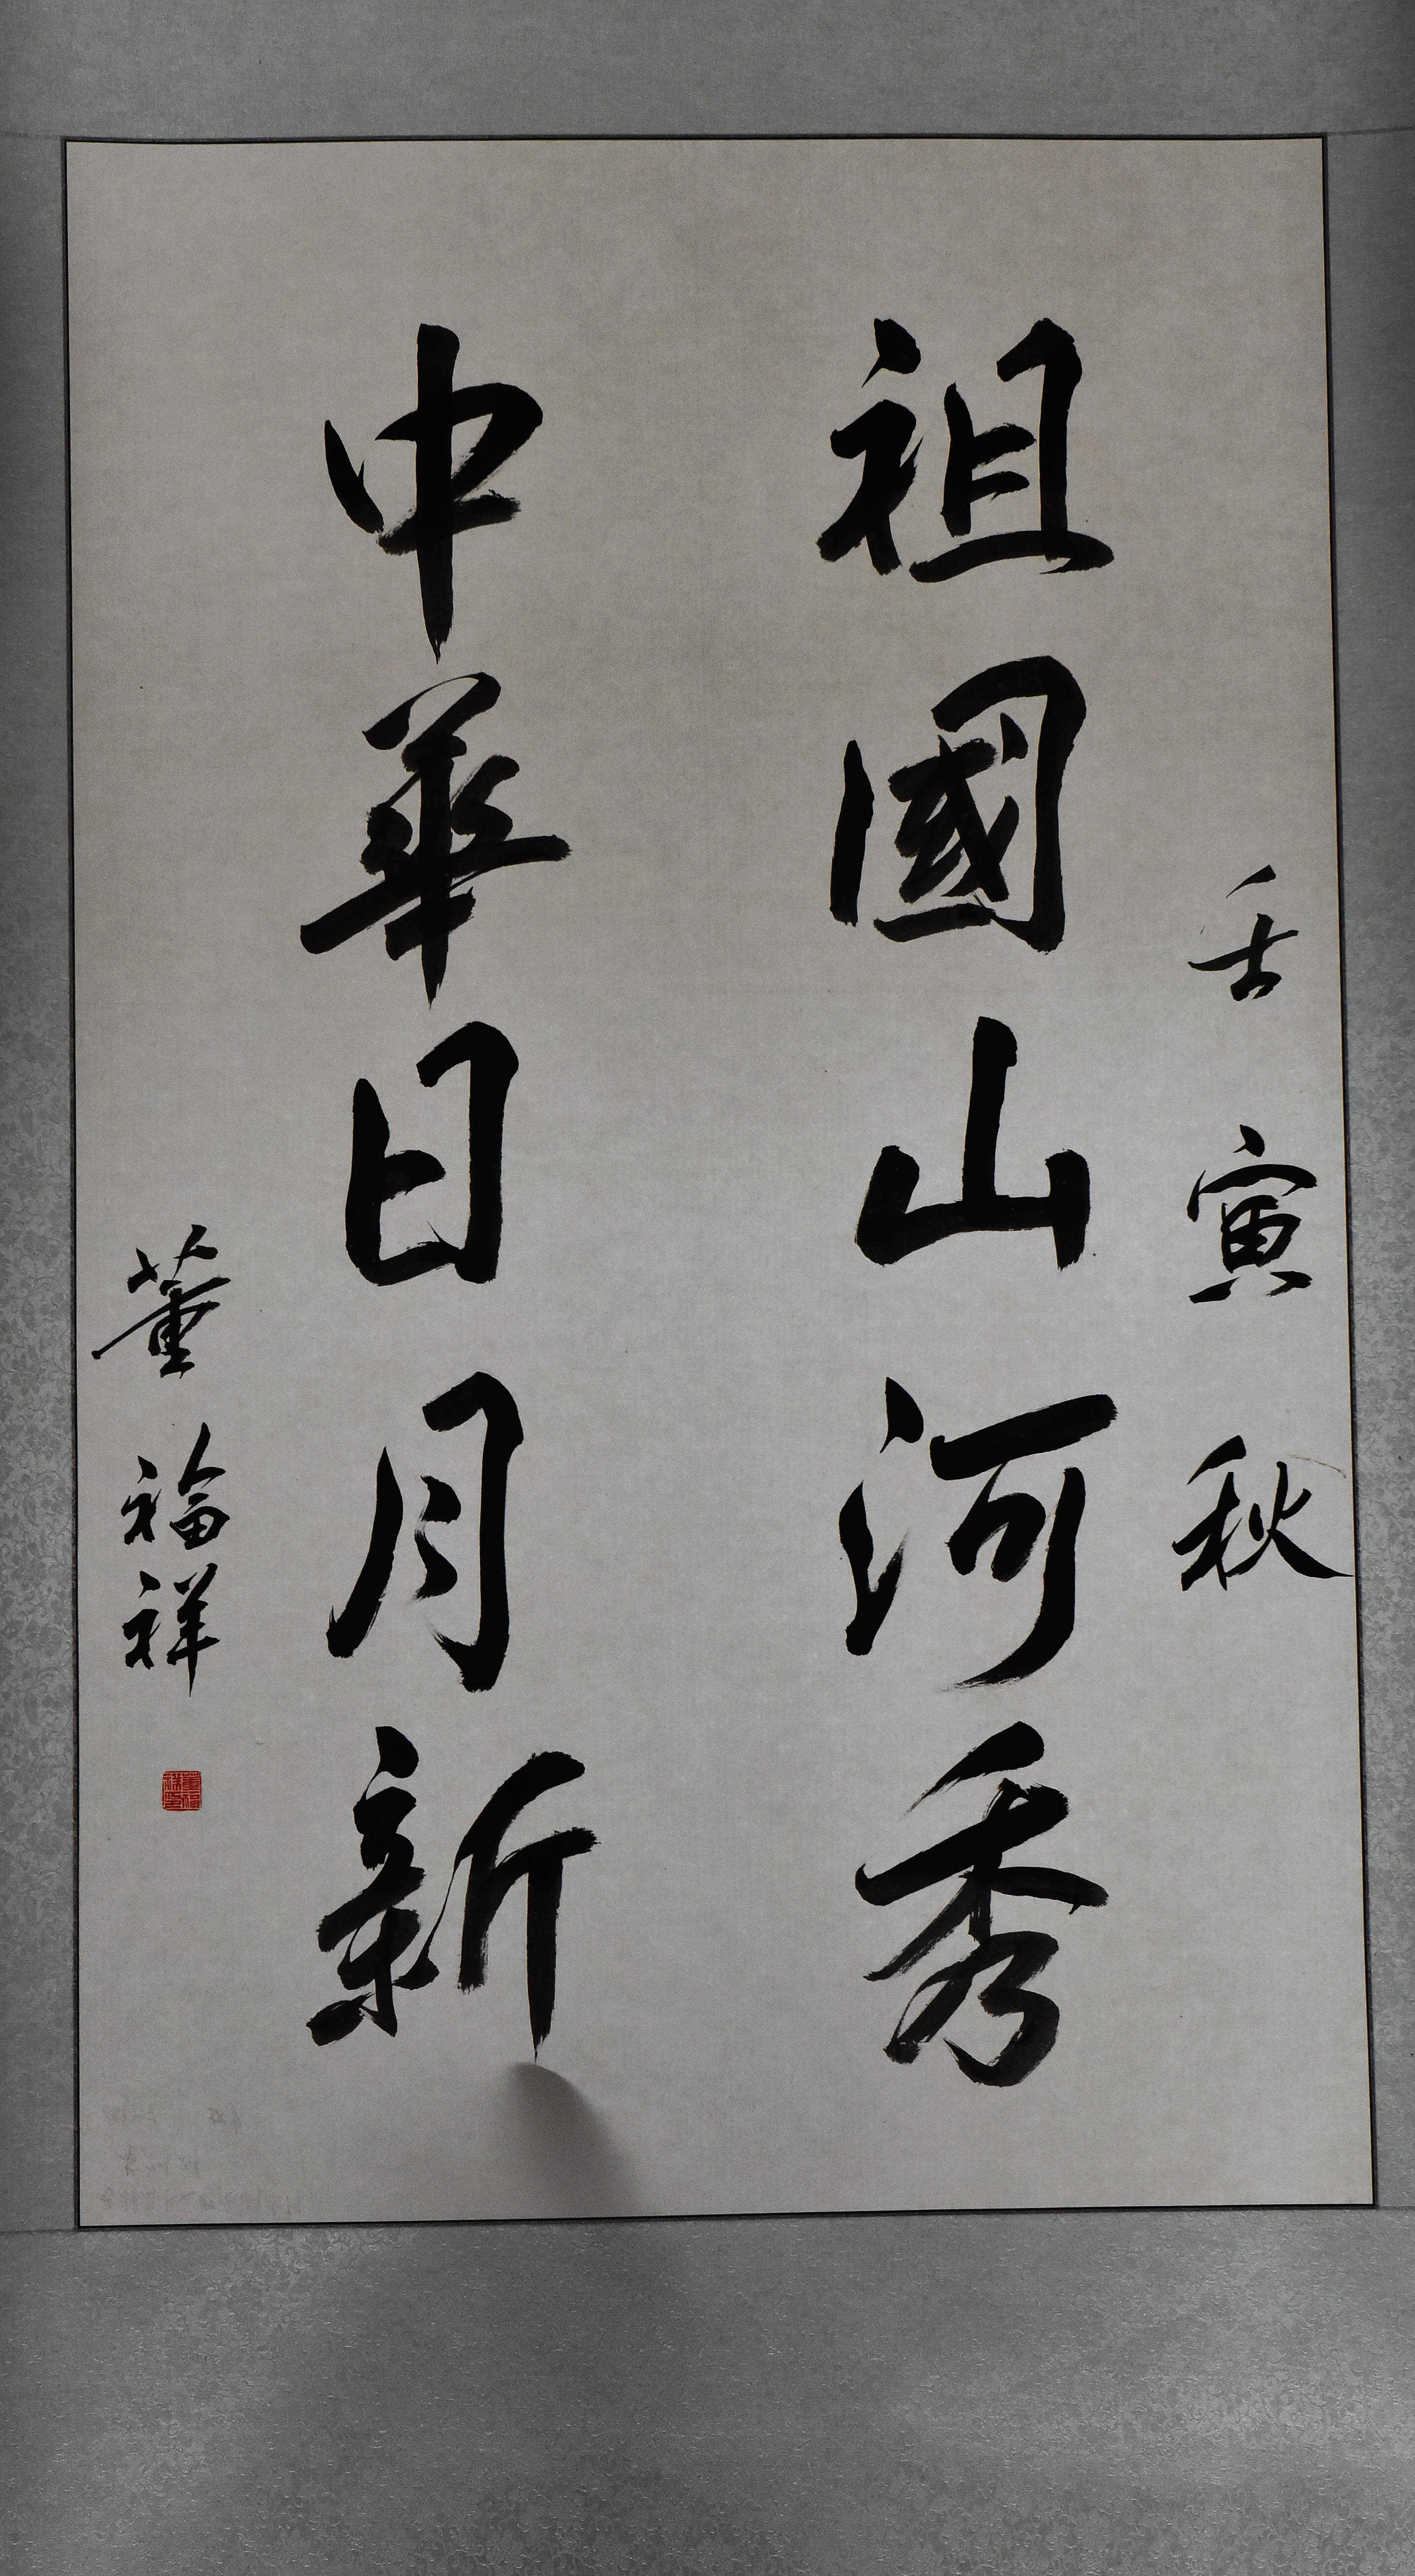 壬寅秋
祖國山河秀
中華日月新
董福祥